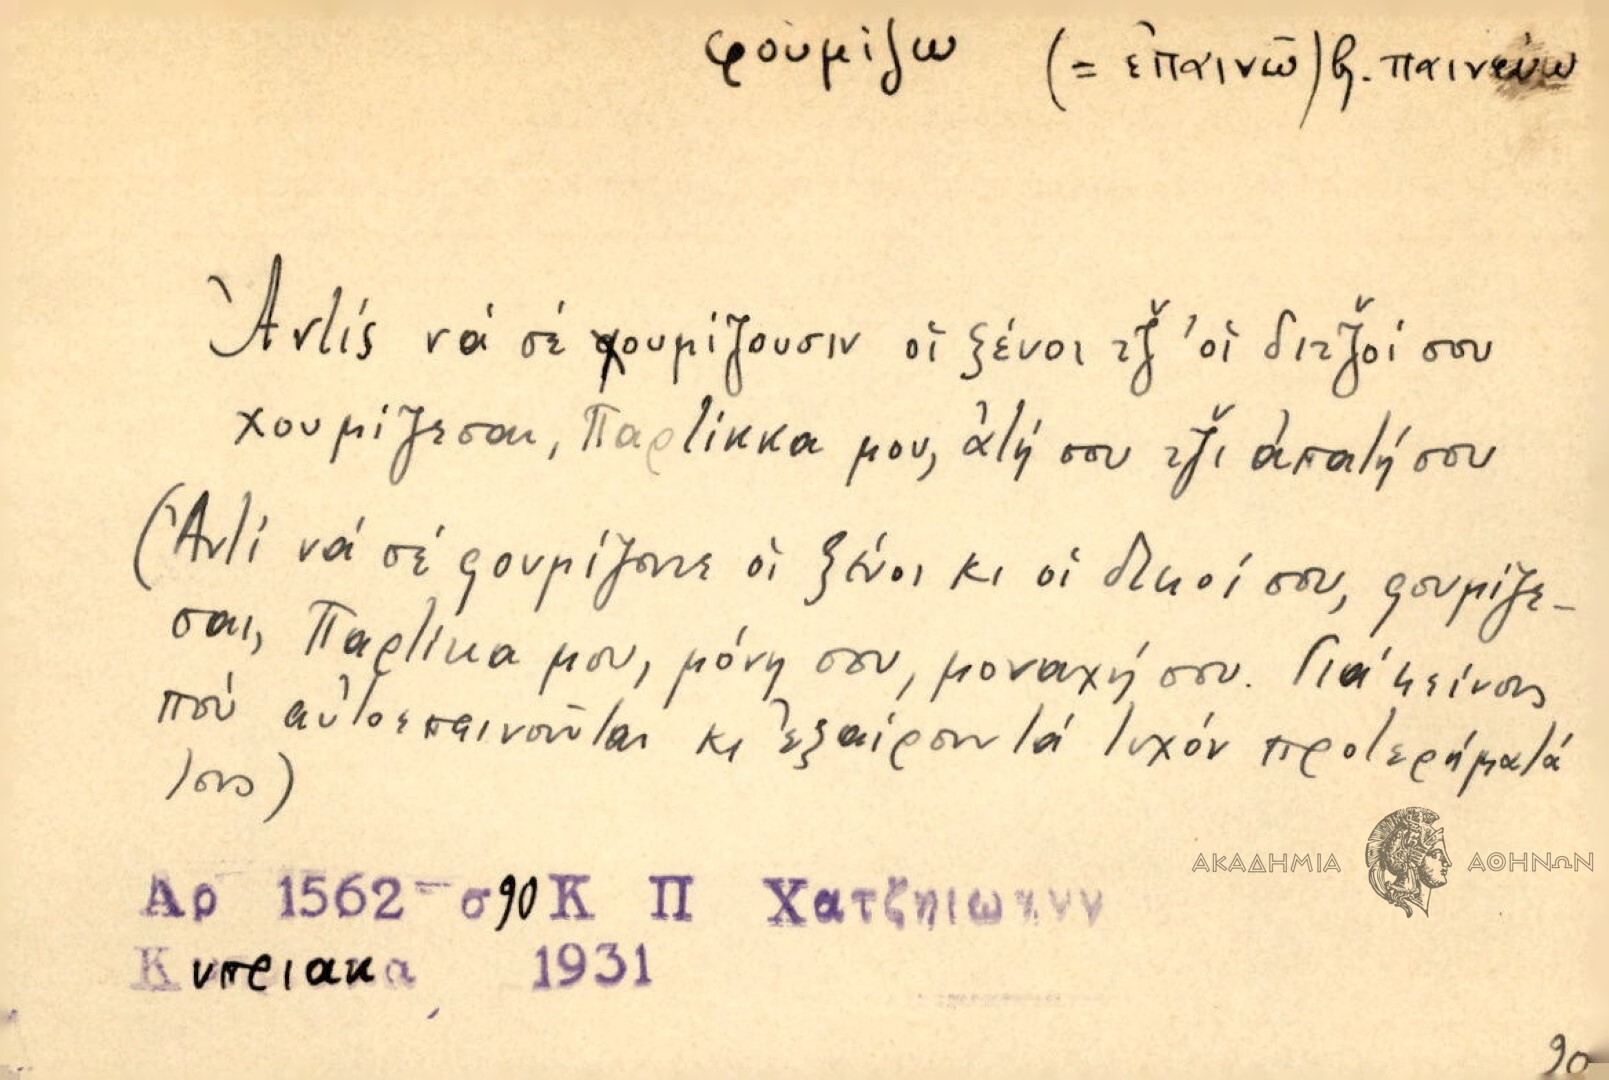 φουμίζω (= ἐπαινῶ) β. παινεύω
Ἀντίς νά σέ χουμίζουσιν οἱ ξένοι τζ̌ 'οἱ διτζ̌οί σου
χουμίζεσαι, Παρτίκκα μου, ἀτή σου τζ̌ι ἀπατή σου
(Ἀντί νά σέ φουμίζουνε οἱ ξένοι κι οἱ δικοί σου, φουμίζε-
σαι, Παρτίκα μου, μόνη σου, μοναχή σου. Γιά κείνους
πού αὐτοεπαινοῦνται κι ἐξαίρουν τά τυχόν προτερήματά
τους)
ΑΚΑΔΗΜΙΑ ΑΘΗΝΩΝ
Αρ 1562 - σ 90 Κ Π Χατζηιωαννν
Κυπριακα 1931
90